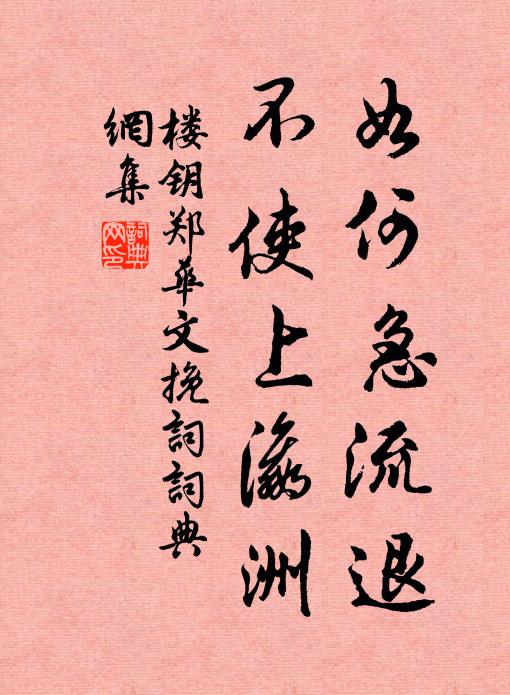 如何急流退
不使上瀛洲
楼钥郑华文挽词詞典
網集
詞典
网印